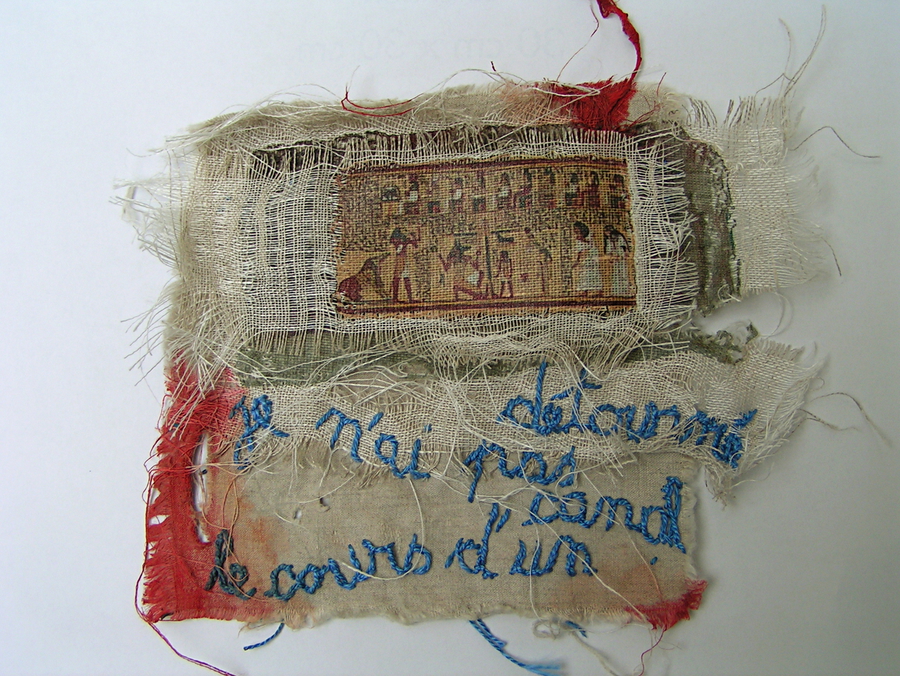 je n'ai pas détourné
le cours d'un canal